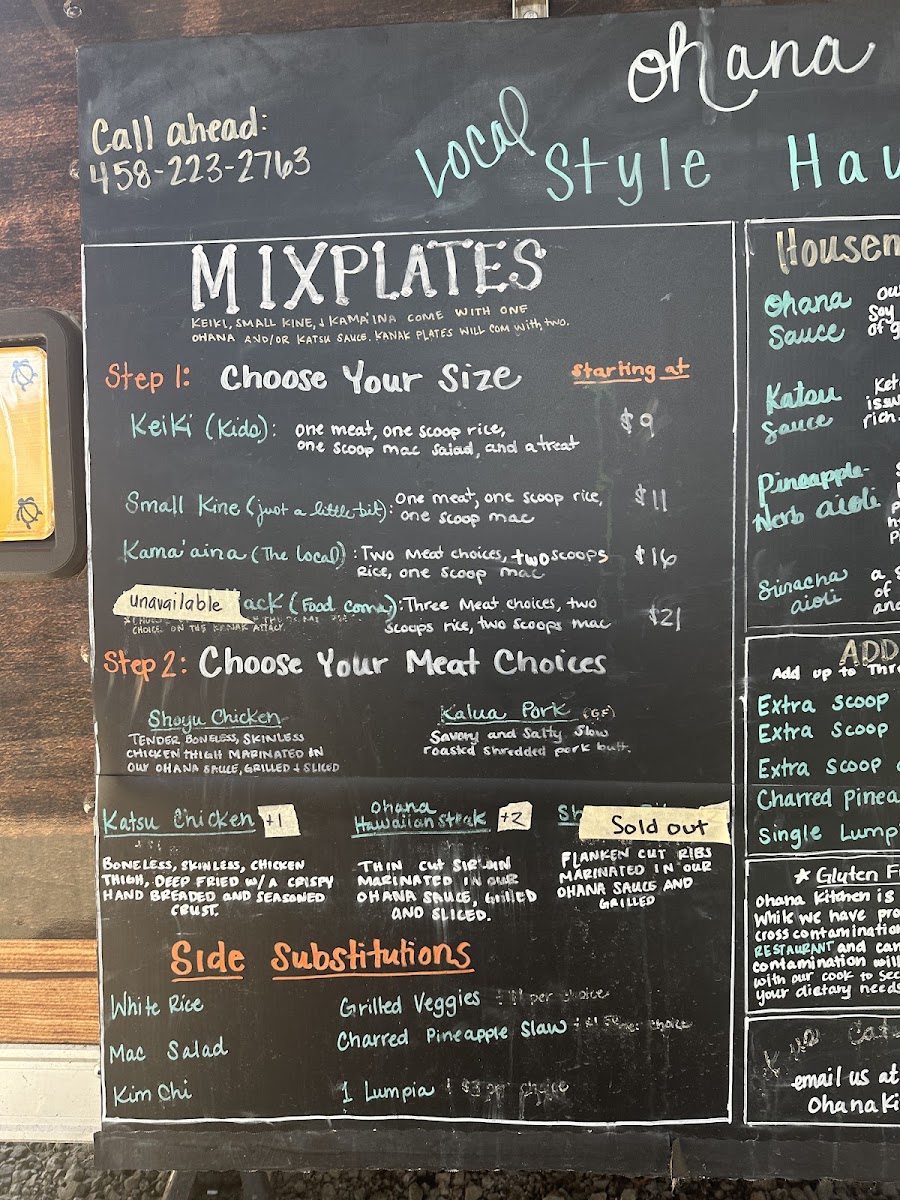 Call ahead:
458-223-2763
Ohana
Local
Style Hav
MIXPLATES
KEIKI, SMALL KINE, & KAMA'AINA COME WITH ONE
OHANA AND/OR KATSU SAUCE. KANAK PLATES WILL COM WITH TWO.
Step 1: Choose Your Size starting at
Keiki (Kids): one meat, one scoop rice, $9
one scoop mac salad, and a treat
Small Kine (just a little bit): One meat, one scoop rice, $11
one scoop mac
Kama'aina (The local): Two Meat choices, two scoops $16
Rice, one scoop mac
unavailable ack (Food coma): Three Meat choices, two $21
scoops rice, two scoops mac
CHOICE ON THE KANAK ATTACK
Step 2: Choose Your Meat Choices
Shoyu Chicken
TENDER BONELESS, SKINLESS
CHICKEN THIGH MARINATED IN
OUR OHANA SAUCE, GRILLED & SLICED
Kalua Pork (GF)
Savory and Salty slow
roastd shredded pork butt.
Katsu Chicken +1
BONELESS, SKINLESS, CHICKEN
THIGH, DEEP FRIED W/ A CRISPY
HAND BREADED AND SEASONED
CRUST.
Ohana
Hawaiian steak +2
THIN CUT SIRLOIN
MARINATED IN OUR
OHANA SAUCE, GRILLED
AND SLICED.
Sh
Sold out
FLANKEN CUT RIBS
MARINATED IN OUR
OHANA SAUCE AND
GRILLED
Side Substitutions
White Rice
Mac Salad
Kim Chi
Grilled Veggies per choice
Charred Pineapple Slaw choice
1 Lumpia per choice
Housem
Ohana
Sauce
ou
Soy
of g
Katsu
Sauce
Ket
issu
rich.
Pineapple-
Herb aioli
Siracha
aioli
a s
of
and
ADD
Add up to Thre
Extra scoop
Extra scoop
Extra scoop
Charred Pinea
Single Lump
★ Gluten F
Ohana Kitchen is
While we have pro
cross contaminatio
RESTAURANT and can
contamination will
with our cook to see
your dietary needs
email us at
OhanaKi